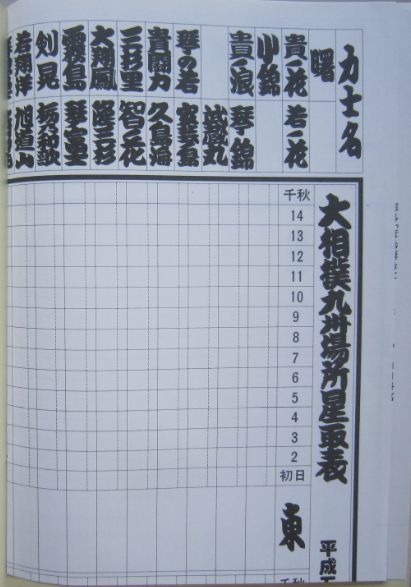 力士名
曙
貴ノ花 若ノ花
小錦
貴ノ浪 琴錦
武蔵丸
琴の若
貴闘力 久島海
三杉里 智ノ花
大翔鳳 隆三杉
霧島
剣晃 栃乃和歌
若翔洋 旭道山
大相撲九州場所星取表
平成
千秋
14
13
12
11
10
9
8
7
6
5
4
3
2
初日
東
千秋